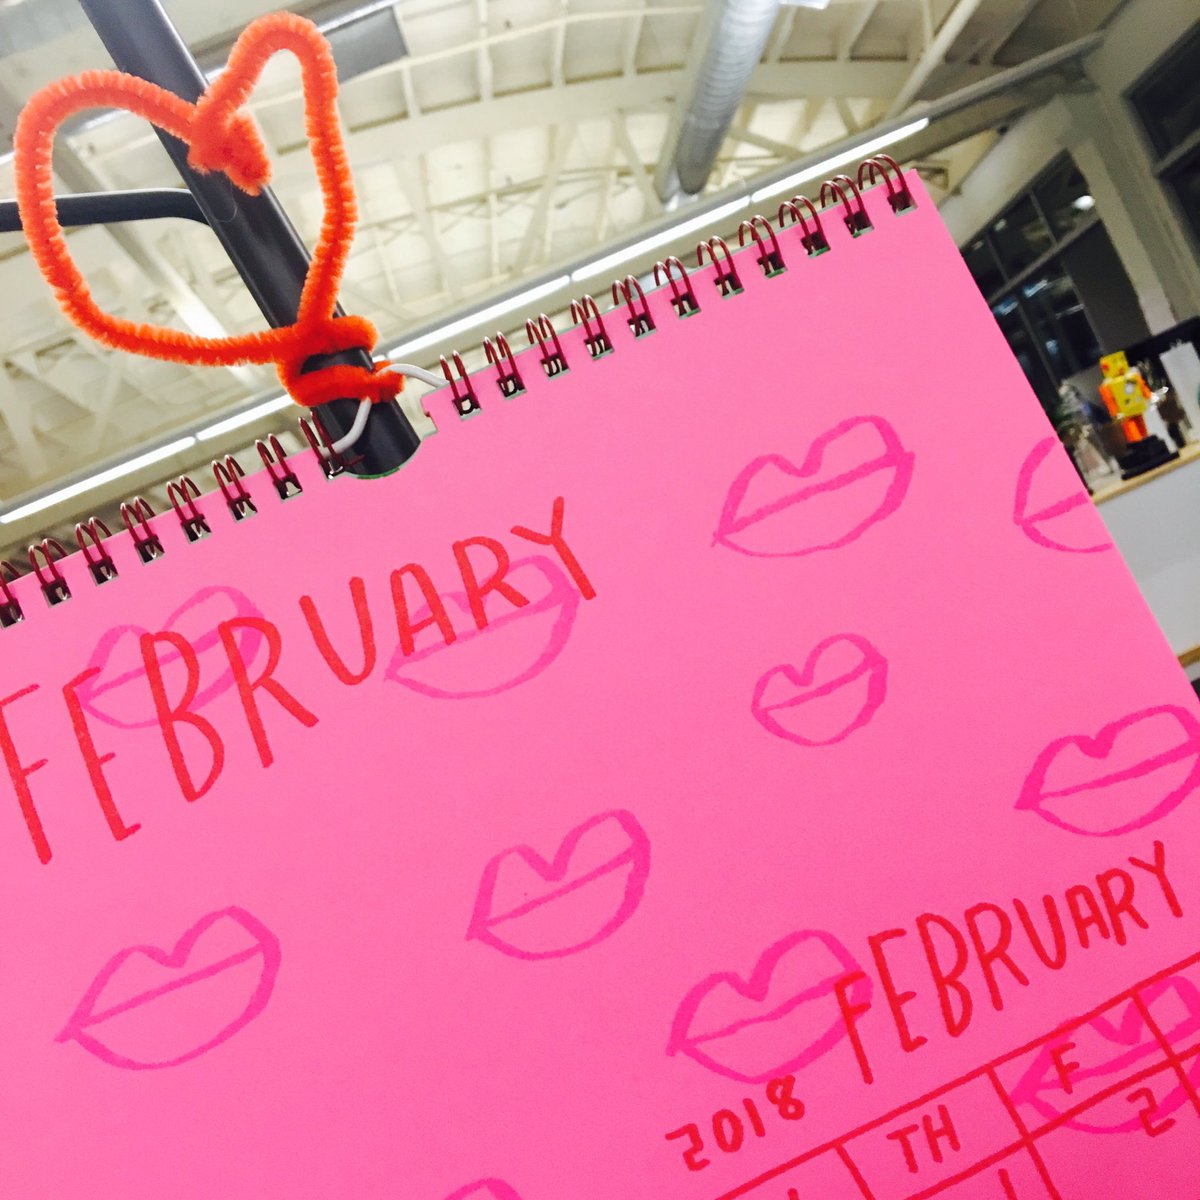 FEBRUARY
FEBRUARY
2018
TH F
1 2